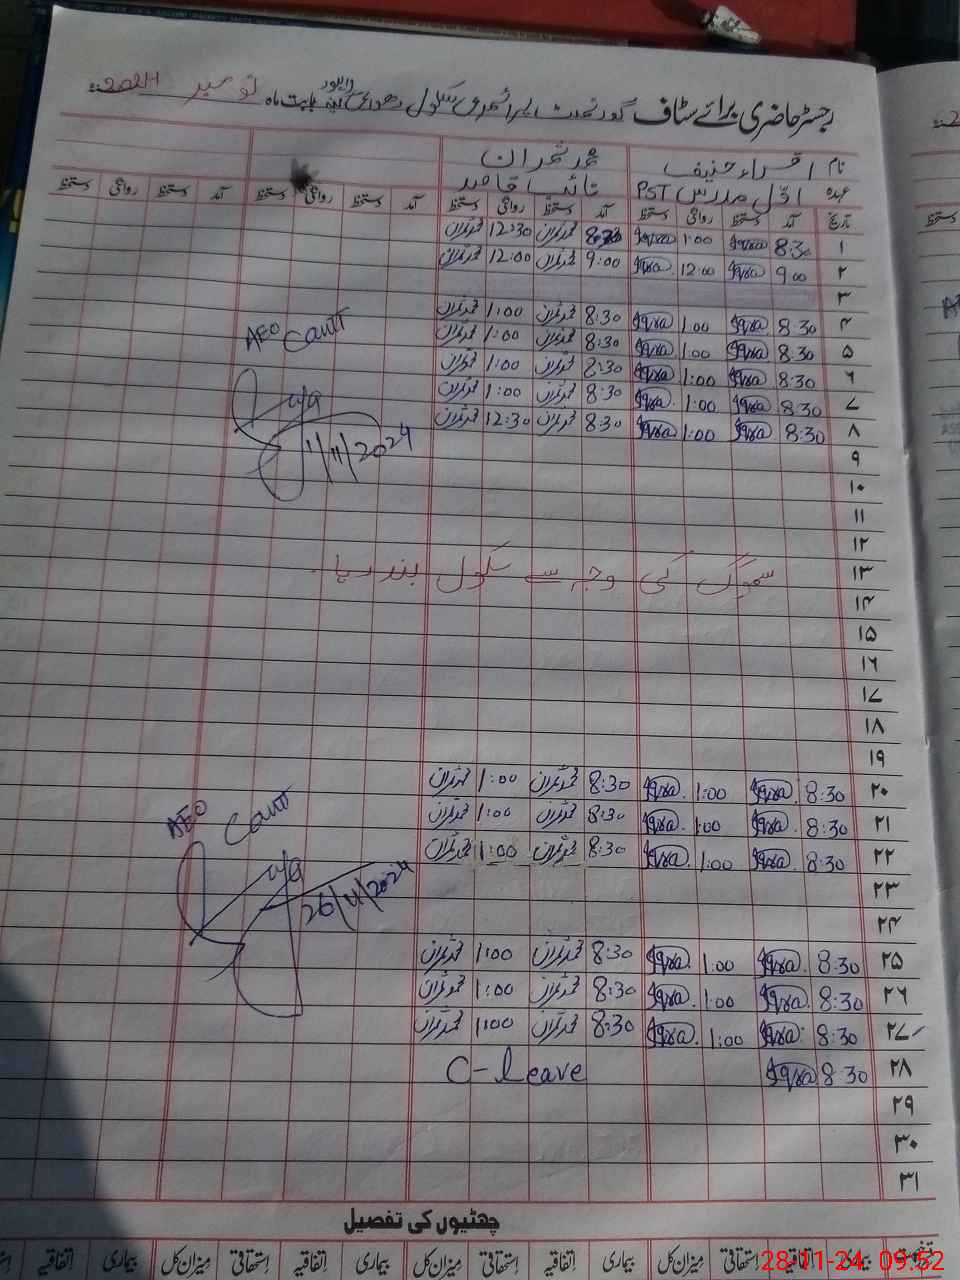 رجسٹر حاضری برائے سٹاف گورنمنٹ پرائمری سکول بابت ماہ نومبر 2024ء
نام اقراء حنیف محمد ثمران
عہدہ اوّل مدرس PST نائب قاصد
تاریخ آمد دستخط روانگی دستخط آمد دستخط روانگی دستخط آمد دستخط روانگی دستخط آمد دستخط روانگی دستخط
۱ 8:30 Iqra 1:00 Iqra 8:30 محمد ثمران 12:30 محمد ثمران
۲ 9:00 Iqra 12:00 Iqra 9:00 محمد ثمران 12:00 محمد ثمران
۳
۴ 8:30 Iqra 1:00 Iqra 8:30 محمد ثمران 1:00 محمد ثمران
۵ 8:30 Iqra 1:00 Iqra 8:30 محمد ثمران 1:00 محمد ثمران
۶ 8:30 Iqra 1:00 Iqra 8:30 محمد ثمران 1:00 محمد ثمران
۷ 8:30 Iqra 1:00 Iqra 8:30 محمد ثمران 1:00 محمد ثمران
۸ 8:30 Iqra 1:00 Iqra 8:30 محمد ثمران 12:30 محمد ثمران
AEO Cantt
11/11/2024
۹
۱۰
۱۱
۱۲
۱۳ سموگ کی وجہ سے سکول بند رہا۔
۱۴
۱۵
۱۶
۱۷
۱۸
۱۹
۲۰ 8:30 Iqra 1:00 Iqra 8:30 محمد ثمران 1:00 محمد ثمران
۲۱ 8:30 Iqra 1:00 Iqra 8:30 محمد ثمران 1:00 محمد ثمران
۲۲ 8:30 Iqra 1:00 Iqra 8:30 محمد ثمران 1:00 محمد ثمران
AEO Cantt
26/11/2024
۲۳
۲۴
۲۵ 8:30 Iqra 1:00 Iqra 8:30 محمد ثمران 1:00 محمد ثمران
۲۶ 8:30 Iqra 1:00 Iqra 8:30 محمد ثمران 1:00 محمد ثمران
۲۷ 8:30 Iqra 1:00 Iqra 8:30 محمد ثمران 1:00 محمد ثمران
۲۸ 8:30 Iqra C-Leave
۲۹
۳۰
۳۱
چھٹیوں کی تفصیل
بیماری اتفاقیہ استحقاقی میزان کل بیماری اتفاقیہ استحقاقی میزان کل بیماری اتفاقیہ استحقاقی میزان کل بیماری اتفاقیہ
28-11-24 09:52